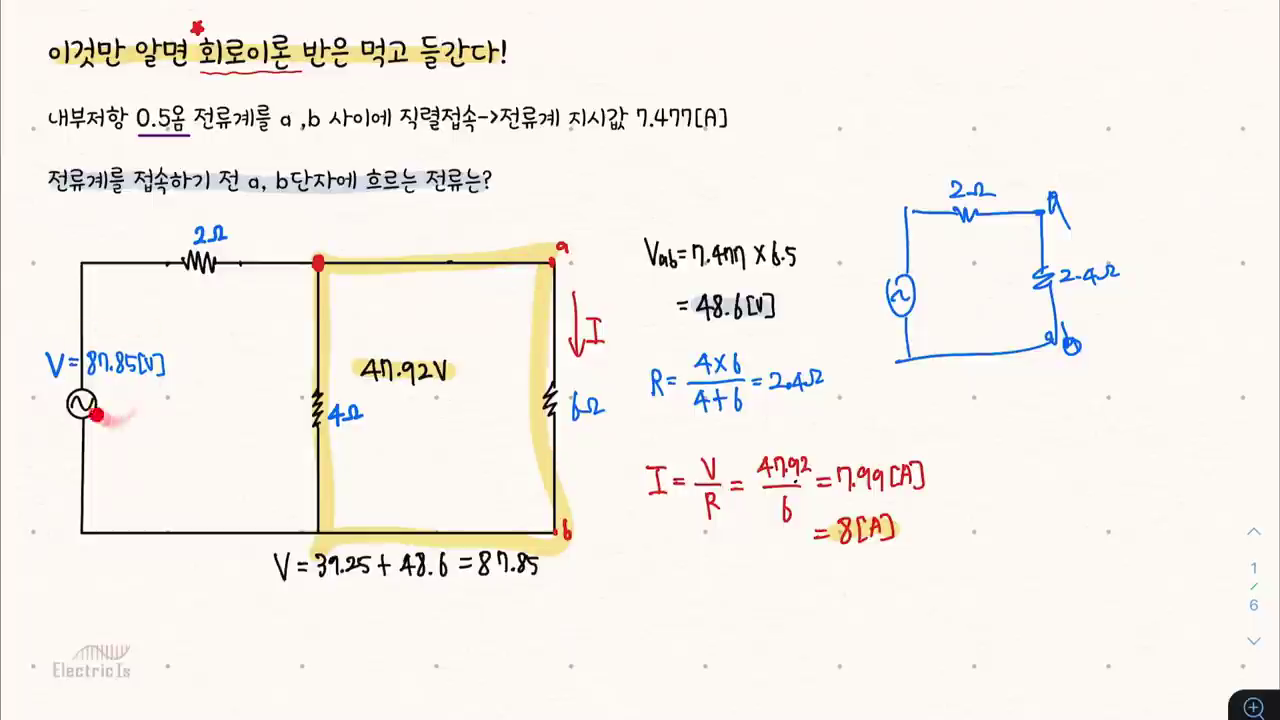 이것만 알면 회로이론 반은 먹고 들간다!
내부저항 0.5옴 전류계를 a ,b 사이에 직렬접속->전류계 지시값 7.477[A]
전류계를 접속하기 전 a, b단자에 흐르는 전류는?
2Ω
a
I
V=87.85[V]
47.92V
4Ω
6Ω
b
V=39.25+48.6=87.85
Vab=7.477×6.5
=48.6[V]
R=4×6/4+6=2.4Ω
I=V/R=47.92/6=7.99[A]
=8[A]
2Ω
a
2.4Ω
b
1
/
6
Electric Is